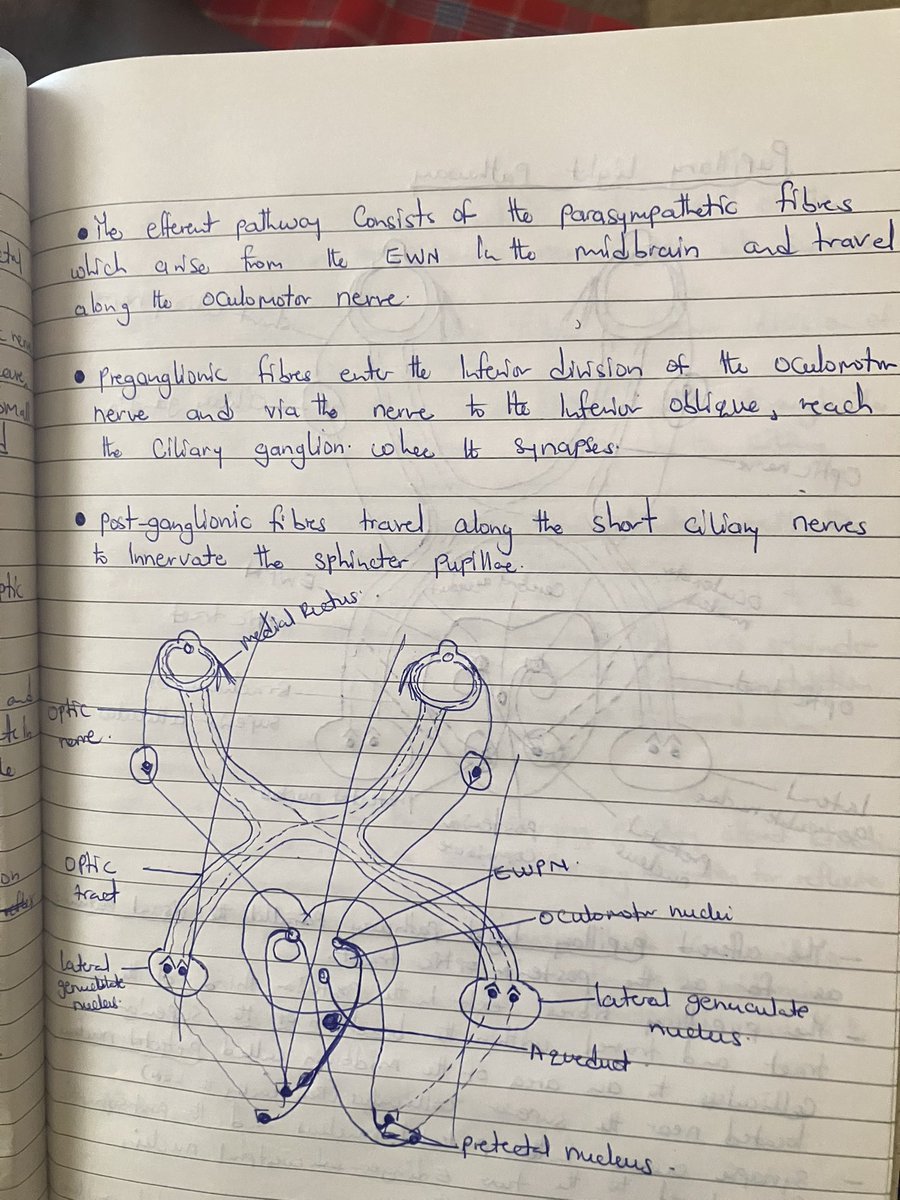 • The efferent pathway Consists of the parasympathetic fibres
which arise from the EWN In the midbrain and travel
along the oculomotor nerve.
• Preganglionic fibres enter the Inferior division of the oculomotor
nerve and via the nerve to the Inferior oblique, reach
the Ciliary ganglion. whee It synapses.
• Post-ganglionic fibres travel along the short ciliary nerves
to Innervate the sphincter pupillae.
medial Rectus.
optic
nerve.
optic
tract
EWPN.
oculomotor nuclei
lateral
nucleus.
lateral genuculate
nucleus.
Aqueduct.
pretectal nucleus.